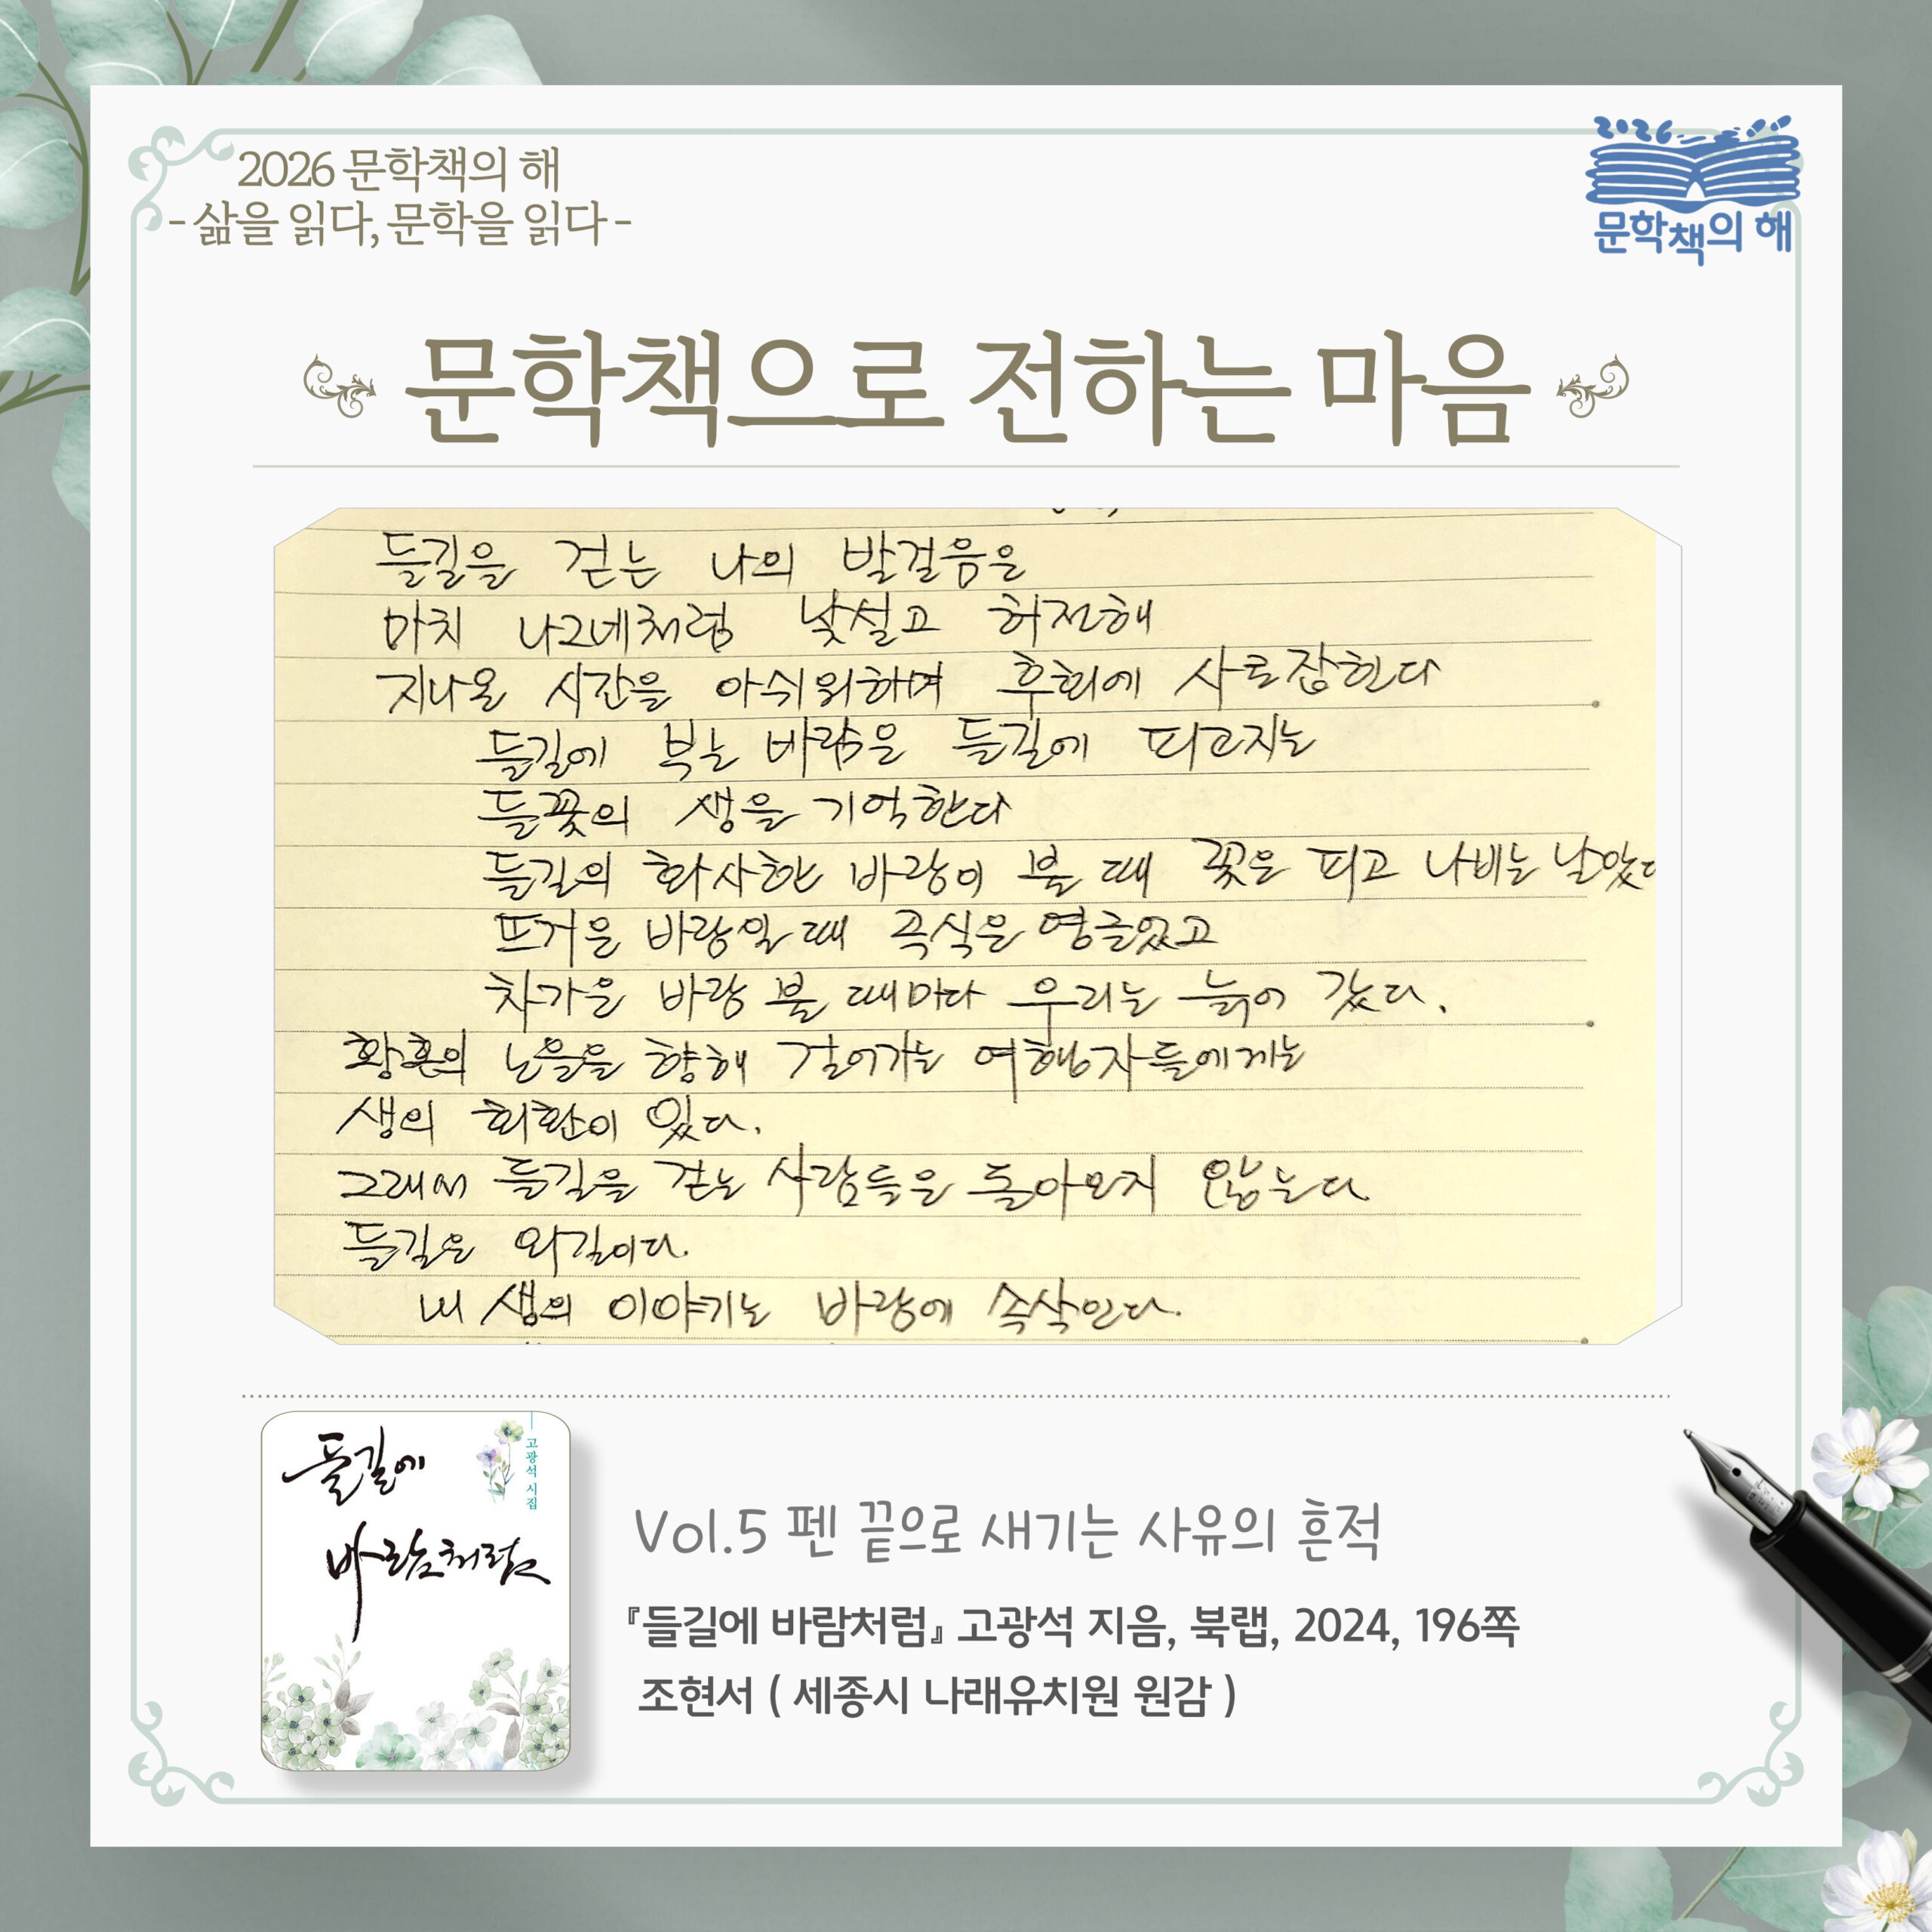 2026 문학책의 해
- 삶을 읽다, 문학을 읽다 -
2026
문학책의 해
문학책으로 전하는 마음
들길을 걷는 나의 발걸음은
마치 나그네처럼 낯설고 허전해
지나온 시간을 아쉬워하며 후회에 사로잡힌다
들길에 부는 바람은 들길에 피고지는
들꽃의 생을 기억한다
들길의 화사한 바람이 불 때 꽃은 피고 나비는 날았다
뜨거운 바람일 때 곡식은 영글었고
차가운 바람 불 때마다 우리는 늙어 갔다.
황혼의 노을을 향해 걸어가는 여행자들에게는
생의 회환이 있다.
그래서 들길을 걷는 사람들은 돌아오지 않는다
들길은 외길이다.
내 생의 이야기는 바람에 속삭인다.
들길에
바람처럼
고광석 시집
Vol.5 펜 끝으로 새기는 사유의 흔적
『들길에 바람처럼』 고광석 지음, 북랩, 2024, 196쪽
조현서 ( 세종시 나래유치원 원감 )